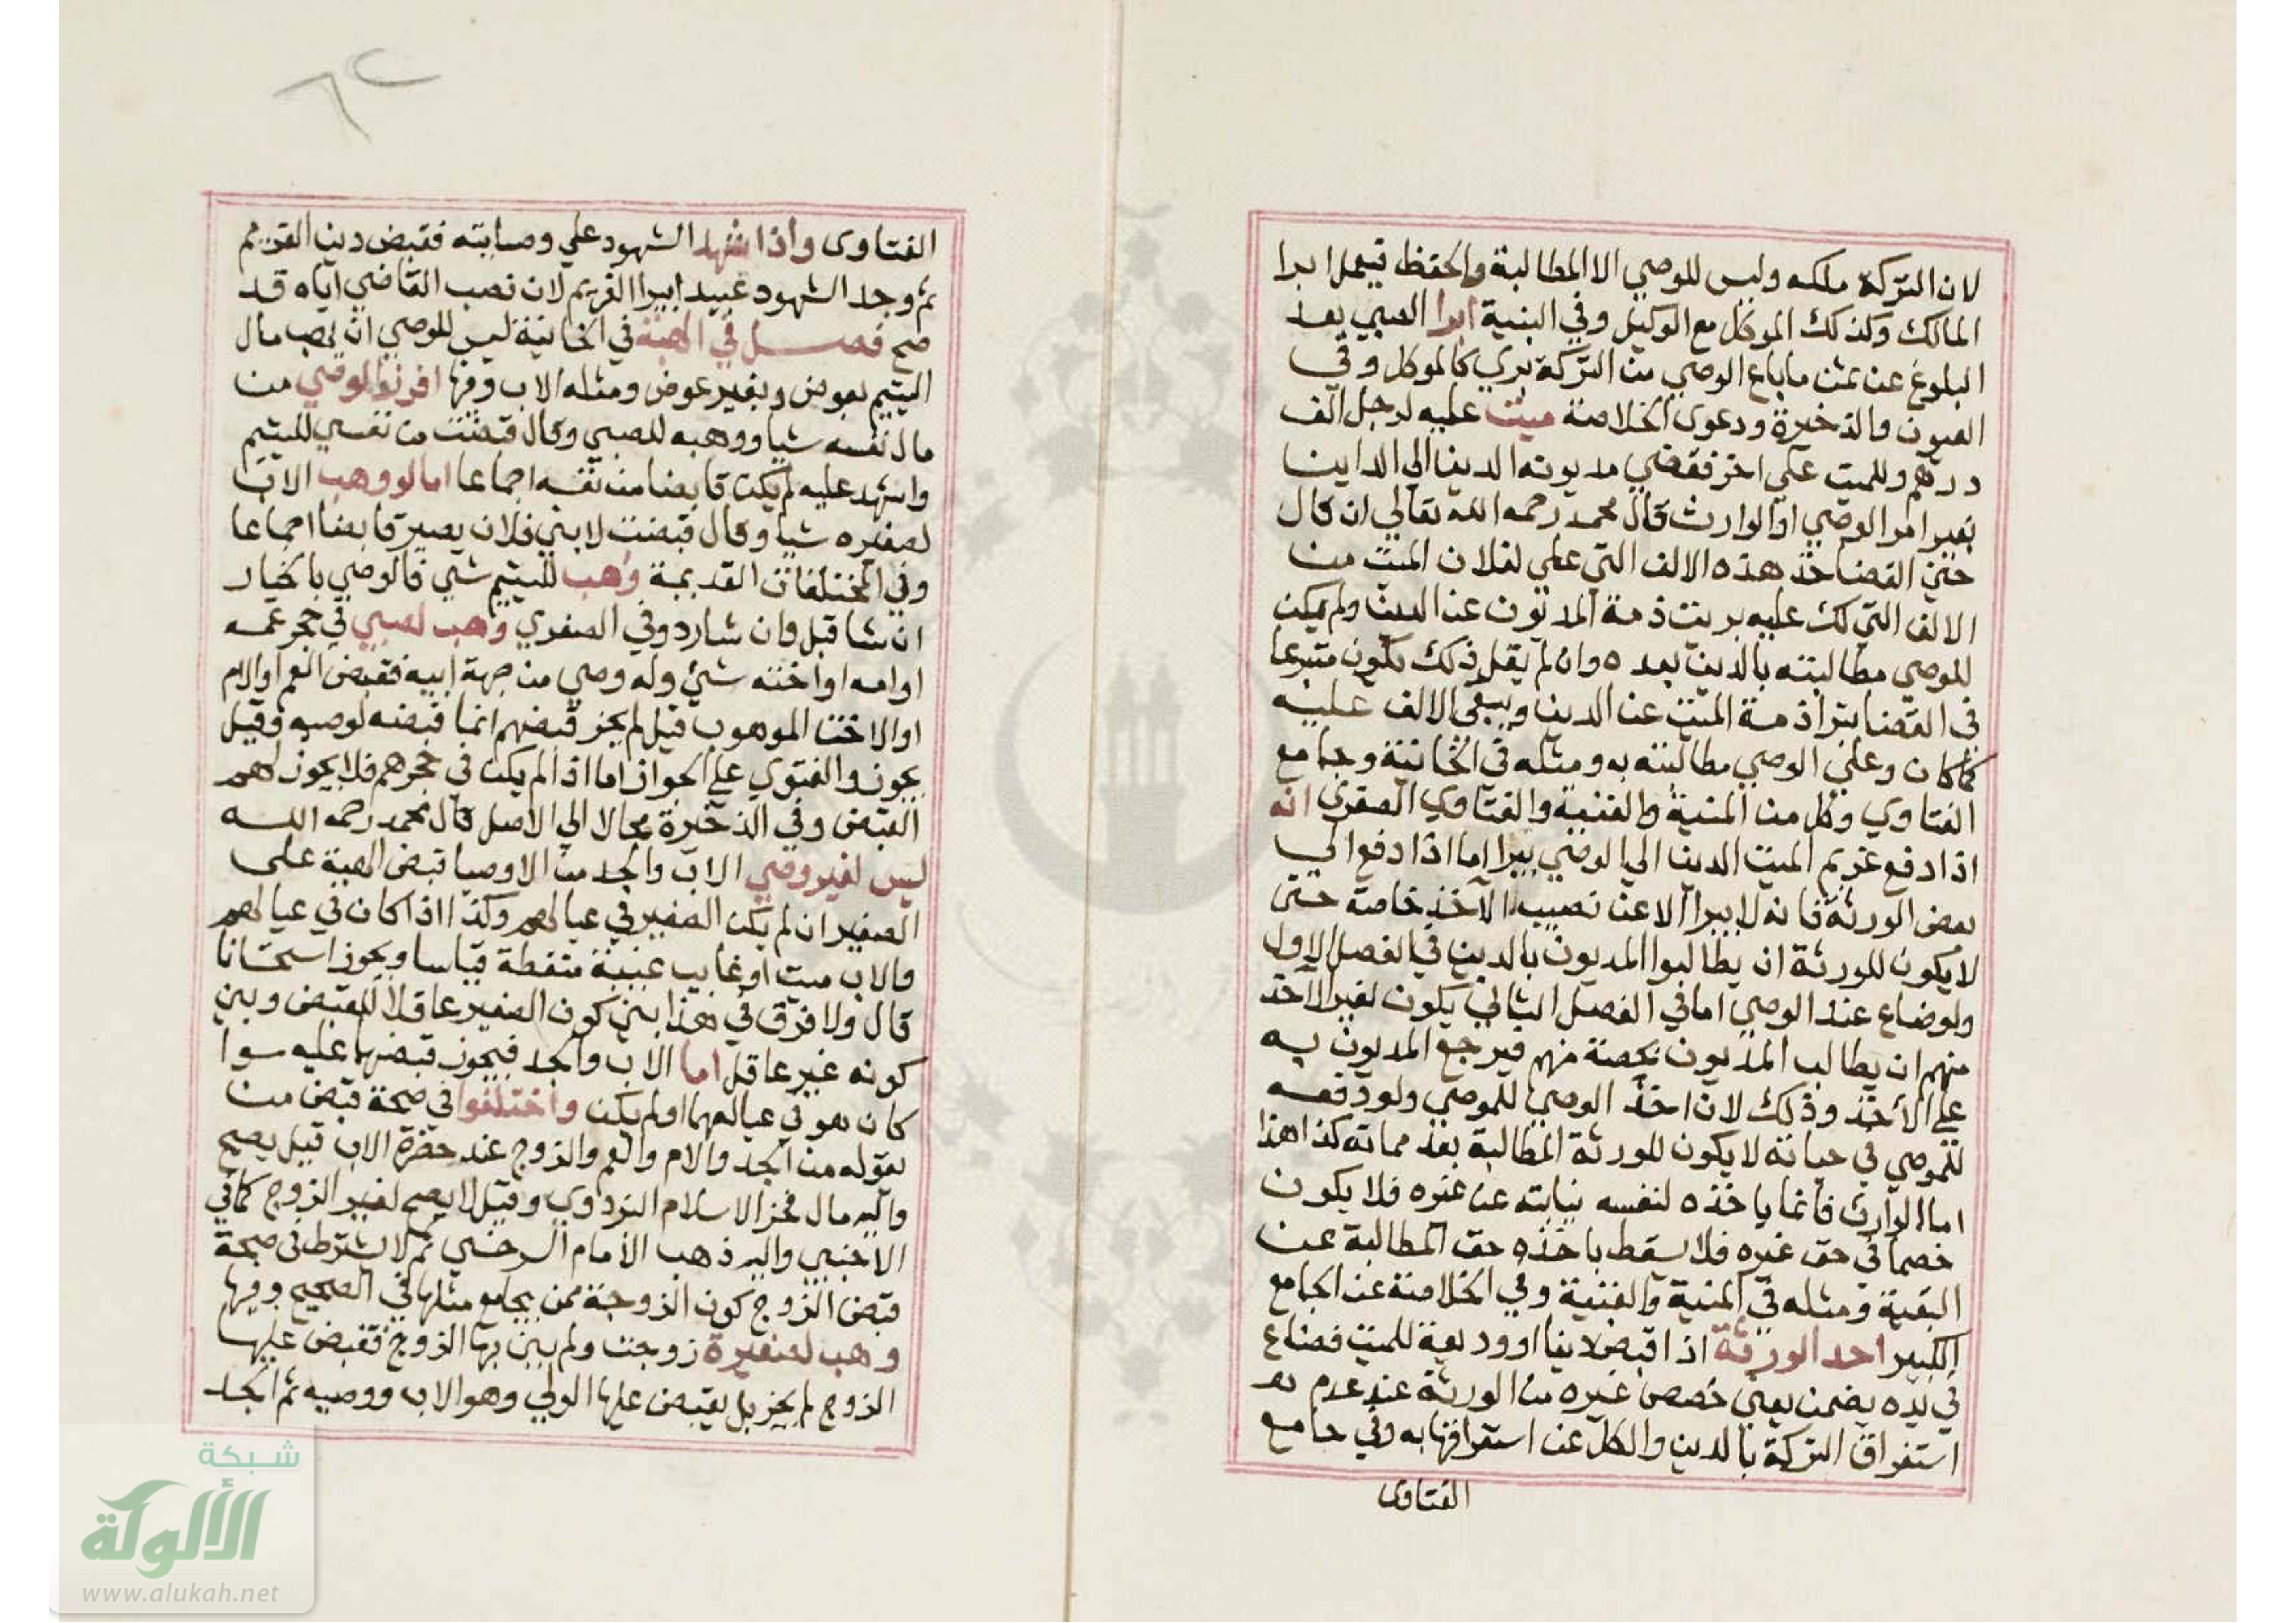 لان التركة ملكه وليس للوصي الا المطالبة والحفظ فيعمل ابرا
المالك وكذلك الموكل مع الوكيل وفي البنية ابرا الصبي بعد
البلوغ عن ثمن ما باع الوصي من التركة بري كالموكل وفي
العيون والذخيرة ودعوى الخلاصة ميت عليه لرجل الف
درهم وللميت علي اخر فقضي مديونه الدين الي الداين
بغير امر الوصي او الوارث قال محمد رحمه الله تعالي ان قال
حين القضا خذ هذه الالف التي علي لفلان الميت من
الالف التي لك عليه بريت ذمة المديون عن الدين ولم يكن
للوصي مطالبته بالدين بعده وان لم يقل ذلك يكون متبرعا
في القضا يبرا ذمة الميت عن الدين ويبقي الالف عليه
كما كان وعلي الوصي مطالبته به ومثله في الخانية وجامع
الفتاوي وكل من المنية والقنية والفتاوي الصغري انه
اذا دفع غريم الميت الدين الي الوصي يبرا اما اذا دفع الي
بعض الورثة فانه لا يبرا الا عن نصيب الآخذ خاصة حتى
لا يكون للورثة ان يطالبوا المديون بالدين في الفصل الاول
ولو ضاع عند الوصي اما في الفصل الثاني يكون لغير الآخذ
منهم ان يطالب المديون بحصته منهم فيرجع المديون به
علي الآخذ وذلك لان اخذ الوصي للموصي ولو دفعه
للموصي في حياته لا يكون للورثة المطالبة بعد مماته كذا هذا
اما الوارث فانما ياخذه لنفسه نيابته عن غيره فلا يكون
خصما في حق غيره فلا يسقط باخذه حق المطالبة عن
البقية ومثله في المنية والقنية وفي الخلاصة عن الجامع
الكبير احد الورثة اذا قبض دينا او وديعة للميت فضاع
في يده يضمن يعني حصص غيره من الورثة عند عدم
استغراق التركة بالدين والكل عن استغراقها به وفي جامع
الفتاوى
الفتاوى واذا شهد الشهود علي وصايته فقبض دين الغريم
ثم وجد الشهود عبيد ابيرا الغريم لان نصب القاضي اياه قد
صح فصل في الهبة في الخانية ليس للوصي ان يهب مال
اليتيم بعوض وبغير عوض ومثله الاب وفيها افرز الوصي من
مال نفسه شيا ووهبه للصبي وقال قبضت من نفسي لليتيم
واشهد عليه لم يكن قابضا من نفسه اجماعا اما لو وهب الاب
لصغيره شيا وقال قبضت لابني فلان يصير قابضا اجماعا
وفي المختلفات القديمة وهب لليتيم شي فالوصي بالخيار
ان شا قبل وان شا رد وفي الصغري وهب لصبي في حجر عمه
او امه او اخته شئ وله وصي من جهة ابيه فقبض العم او الام
او الاخت الموهوب قيل لم يجز قبضهم انما قبضه لوصيه وقيل
يجوز والفتوي علي الجواز اما اذا لم يكن في حجرهم فلا يجوز لهم
القبض وفي الذخيرة محالا الي الاصل قال محمد رحمه الله
ليس لغير وصي الاب والجد من الاوصيا قبض الهبة على
الصغير ان لم يكن الصغير في عيالهم وكذا اذا كان في عيالهم
والاب ميت او غايب غيبة منقطة قياسا ويجوز استحسانا
قال ولا فرق في هذا بين كون الصغير عاقلا للقبض وبين
كونه غير عاقل اما الاب والجد فيجوز قبضهما عليه سوا
كان هو في عيالهما او لم يكن واختلفوا في صحة قبض من
يعوله من الجد والام والعم والزوج عند حضرة الاب قيل يصح
واليه مال فخر الاسلام البزدوي وقيل لا يصح لغير الزوج كما في
الاجنبي واليه ذهب الامام السرخسي ثم لا يشترط في صحة
قبض الزوج كون الزوجة ممن يجامع مثلها في الصحيح وفيها
وهب لصغيرة زوجت ولم يبن بها الزوج فقبض عليها
الزوج لم يجز بل يقبض عليها الولي وهو الاب ووصيه ثم الجد
شبكة
الألوكة
www.alukah.net